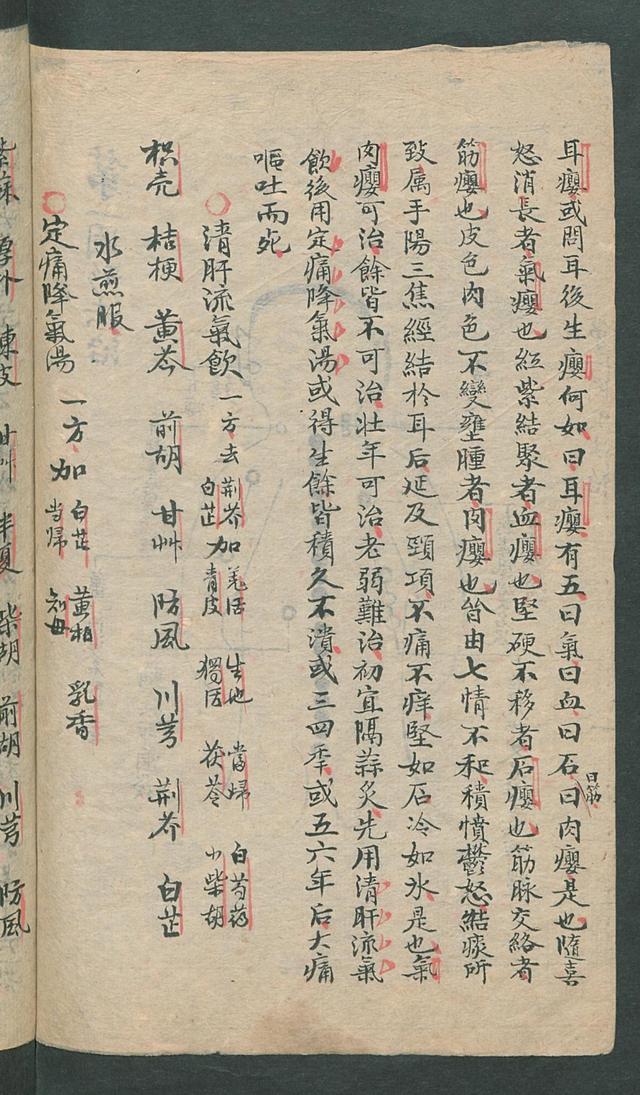 耳癭或問耳後生癭何如曰耳癭有五曰氣曰血曰石曰肉曰筋癭是也隨喜
怒消長者氣癭也紅紫結聚者血癭也堅硬不移者石癭也筋脉交絡者
筋癭也皮色肉色不變壅腫者肉癭也皆由七情不和積憤鬱怒結痰所
致属手陽三焦經結於耳后延及頸項不痛不痒堅如石冷如氷是也氣
肉癭可治餘皆不可治壮年可治老弱難治初宜隔蒜炙先用清肝流氣
飲後用定痛降氣湯或得生餘皆積久不潰或三四年或五六年后大痛
嘔吐而死
清肝流氣飲 一方去荆芥白芷加羌活青皮 生地獨活 當歸茯苓 白芍药小柴胡
枳壳 桔梗 黄芩 前胡 甘艸 防風 川芎 荆芥 白芷
水煎服
定痛降氣湯 一方加白芷當歸 黄柏知母 乳香
紫蘇 厚朴 陳皮 甘艸 半夏 柴胡 前胡 川芎 防風